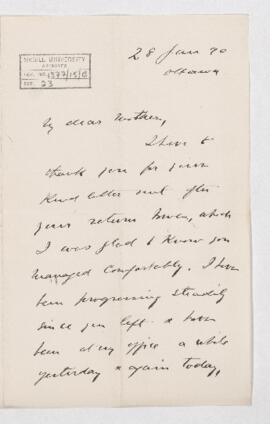 McGILL UNIVERSITY
ARCHIVES
ACC. NO. 1377/15/
REF. 23
28 Jan 90
Ottawa
My dear Mother,
I have to
thank you for your
kind letter sent after
your return home, which
I was glad to know you
managed comfortably. I have
been progressing steadily
since you left. & have
been at my office a while
yesterday & again today,